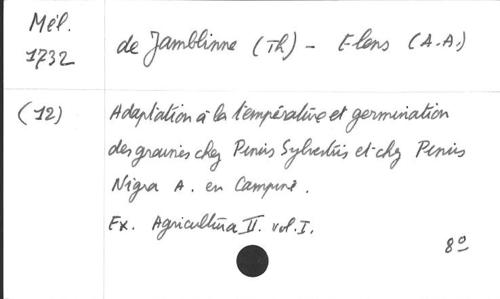 Mél.
1732
de Jamblinne (Th) - Elens (A.A.)
(12)
Adaptation à la température et germination
des graines chez Pinus Sylvestris et chez Pinus
Nigra A. en Campine.
Ex. Agricultura II. vol. I.
8º